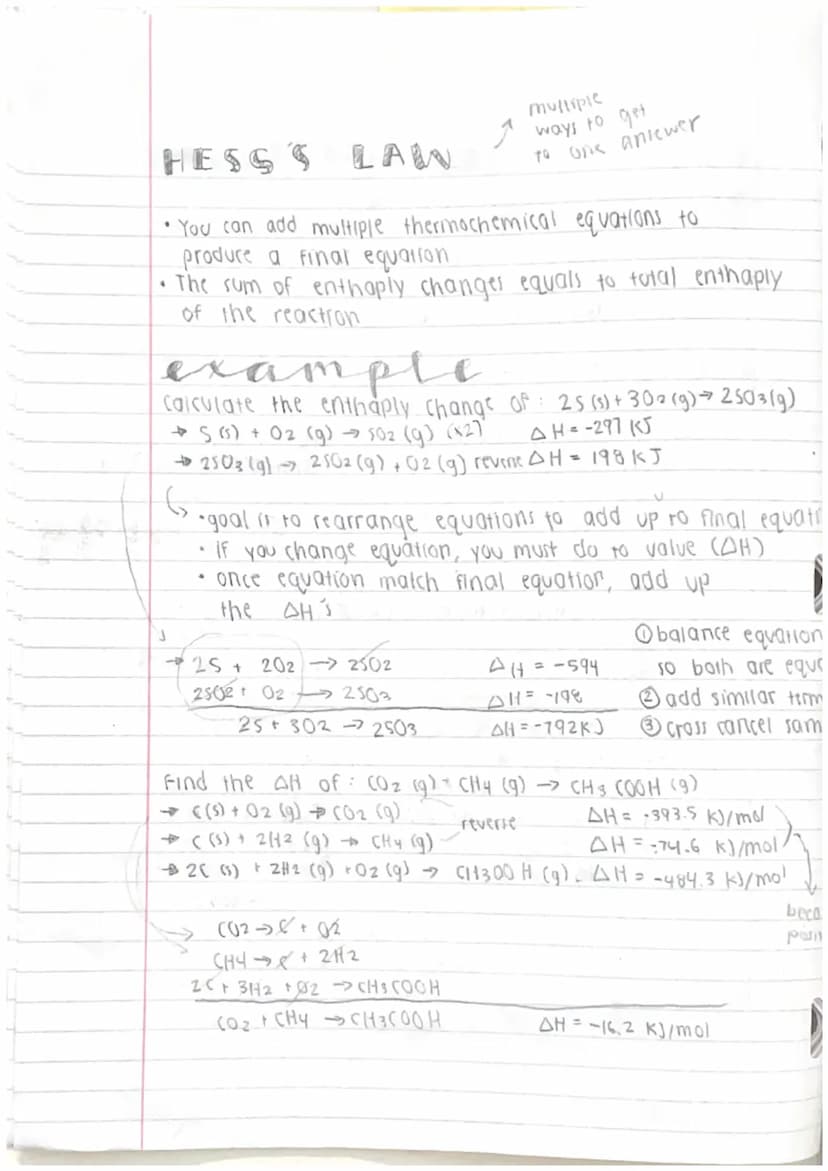 multiple
ways to get
to one answer
HESS'S LAW
• You can add multiple thermochemical equations to
produce a final equation
• The sum of enthaply changes equals to total enthaply
of the reaction
example
Calculate the enthaply change of : 2S (s) + 3O2 (g) → 2SO3 (g)
→ S (s) + O2 (g) → SO2 (g) (x2) ΔH = -297 KJ
→ 2SO3 (g) → 2SO2 (g) + O2 (g) reverse ΔH = 198 KJ
• goal is to rearrange equations to add up to final equati
• If you change equation, you must do to value (ΔH)
• once equation match final equation, add up
the ΔH's
① balance equation
→ 2S + 2O2 → 2SO2 ΔH = -594 so both are equa
2SO2 + O2 → 2SO3 ΔH = -198 ② add similar term
2S + 3O2 → 2SO3 ΔH = -792 KJ ③ cross cancel sam
Find the ΔH of : CO2 (g) + CH4 (g) → CH3COOH (g)
→ C (s) + O2 (g) → CO2 (g) reverse ΔH = -393.5 KJ/mol
→ C (s) + 2H2 (g) → CH4 (g) ΔH = -74.6 KJ/mol
→ 2C (s) + 2H2 (g) + O2 (g) → CH3OOH (g). ΔH = -484.3 KJ/mol
beca
CO2 → C + O2
CH4 → C + 2H2
2C + 3H2 + O2 → CH3COOH
CO2 + CH4 → CH3COOH ΔH = -16.2 KJ/mol